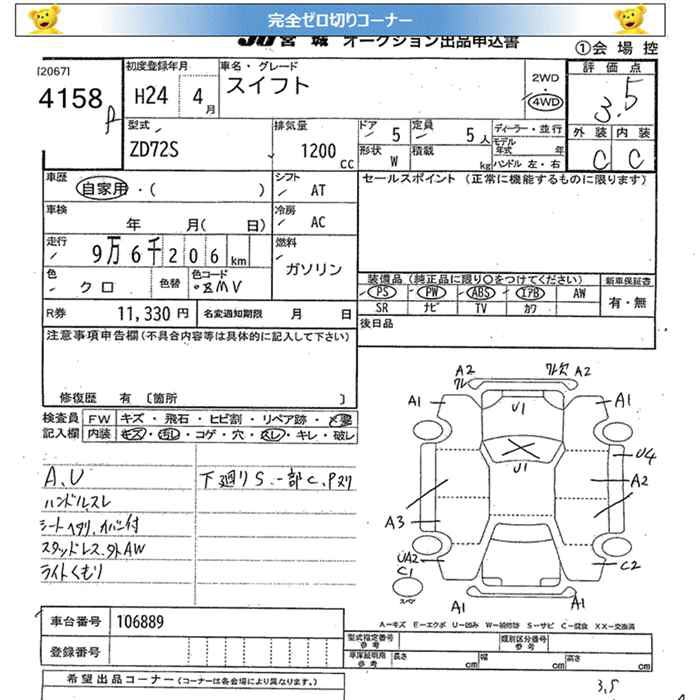 完全ゼロ切りコーナー
JU 宮城 オークション出品申込書
①会場控
[2067]
4158
初度登録年月 H24 4月
車名・グレード スイフト
2WD ・ 4WD
評価点 3.5
外装 内装
C C
型式 ZD72S
排気量 1200 cc
ドア 5 定員 5人
形状 W 積載 kg
ディーラー・並行
モデル年式 年
ハンドル 左・右
車歴 自家用・( )
シフト AT
車検 年 月( 日)
冷房 AC
走行 9万6千206km
燃料 ガソリン
色 クロ 色替 色コード
R券 11,330円 名変通知期限 月 日
セールスポイント (正常に機能するものに限ります)
装備品 (純正品に限り○をつけてください) 新車保証書
PS PW ABS エアB AW 有・無
SR ナビ TV カワ
後日品
注意事項申告欄(不具合内容等は具体的に記入して下さい)
修復歴 有 〔箇所 〕
検査員 FW キズ・飛石・ヒビ割・リペア跡・
記入欄 内装 キズ・汚レ・コゲ・穴・スレ・キレ・破レ
A、U
ハンドルスレ
シートヘタリ、カバー付
スタッドレス、社外AW
ライトくもり
下廻りS、一部C、Pヌリ
A2 A2
A1 U1 A1
U1
U4
A2
A3
UA2
C1 C2
スペア
A1 A1
A―キズ E―エクボ U―凹み W―補修跡 S―サビ C―腐食 XX―交換済
車台番号 106889
登録番号
型式指定番号 参考 類別区分番号 参考
車庫証明用 参考 長さ cm 幅 cm 高さ cm
希望出品コーナー(コーナーは各会場により異なります。)
3.5